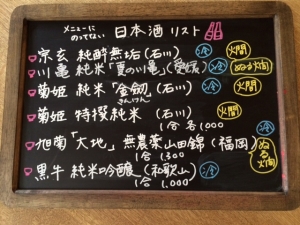 メニューに
のってない 日本酒リスト
宗玄 純酔無垢（石川） 冷 火間
川亀 純米「夏の川亀」（愛媛） 冷 ぬる燗
菊姫 純米「金劔」（石川） 冷 火間
きんけん
菊姫 特撰純米（石川） 火間
1合 各1,000
旭菊「大地」無農薬山田錦（福岡） 冷 ぬる燗
1合 1,300
黒牛 純米吟醸（和歌山） 冷
1合 1,000